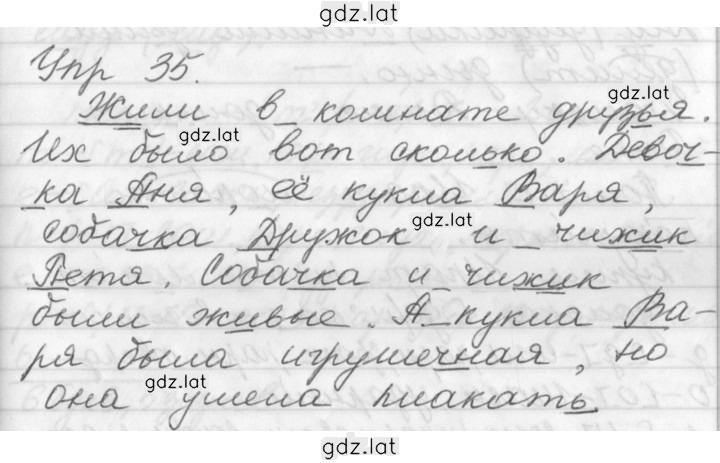 gdz.lat
Упр 35.
Жили в комнате друзья.
gdz.lat
gdz.lat
Их было вот сколько. Девоч-
ка Аня, её кукла Варя,
gdz.lat
собачка Дружок и чижик
Петя. Собачка и чижик
были живые. А кукла Ва-
ря была игрушечная, но
gdz.lat
она умела плакать.
gdz.lat